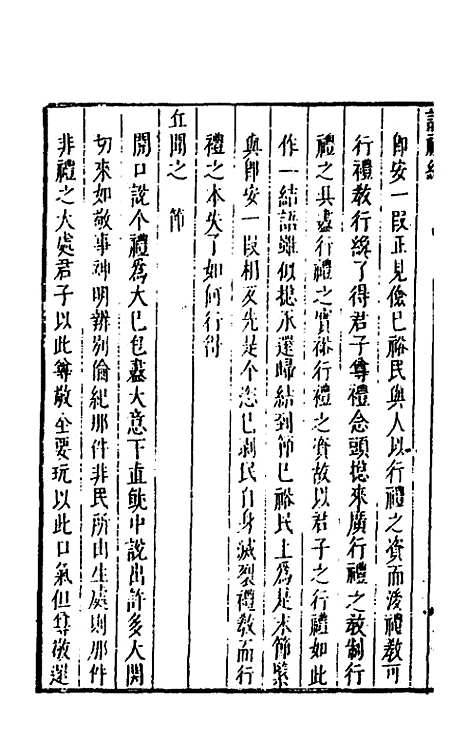 即安一段正見儉已裕民與人以行禮之資而後禮教可
行禮教行纔了得君子尊禮念頭總來廣行禮之教制行
禮之具盡行禮之實裕行禮之資故以君子之行禮如此
作一結語雖似總承還歸結到節已裕民上為是末節緊
與即安一段相反先是个恣已剥民自身滅裂禮教而行
禮之本失了如何行得
丘聞之節
開口說个禮為大已包盡大意下直就中說出許多大関
切來如敬事神明辨别倫紀那件非民所由生處則那件
非禮之大處君子以此尊敬全要玩以此口氣但尊敬還